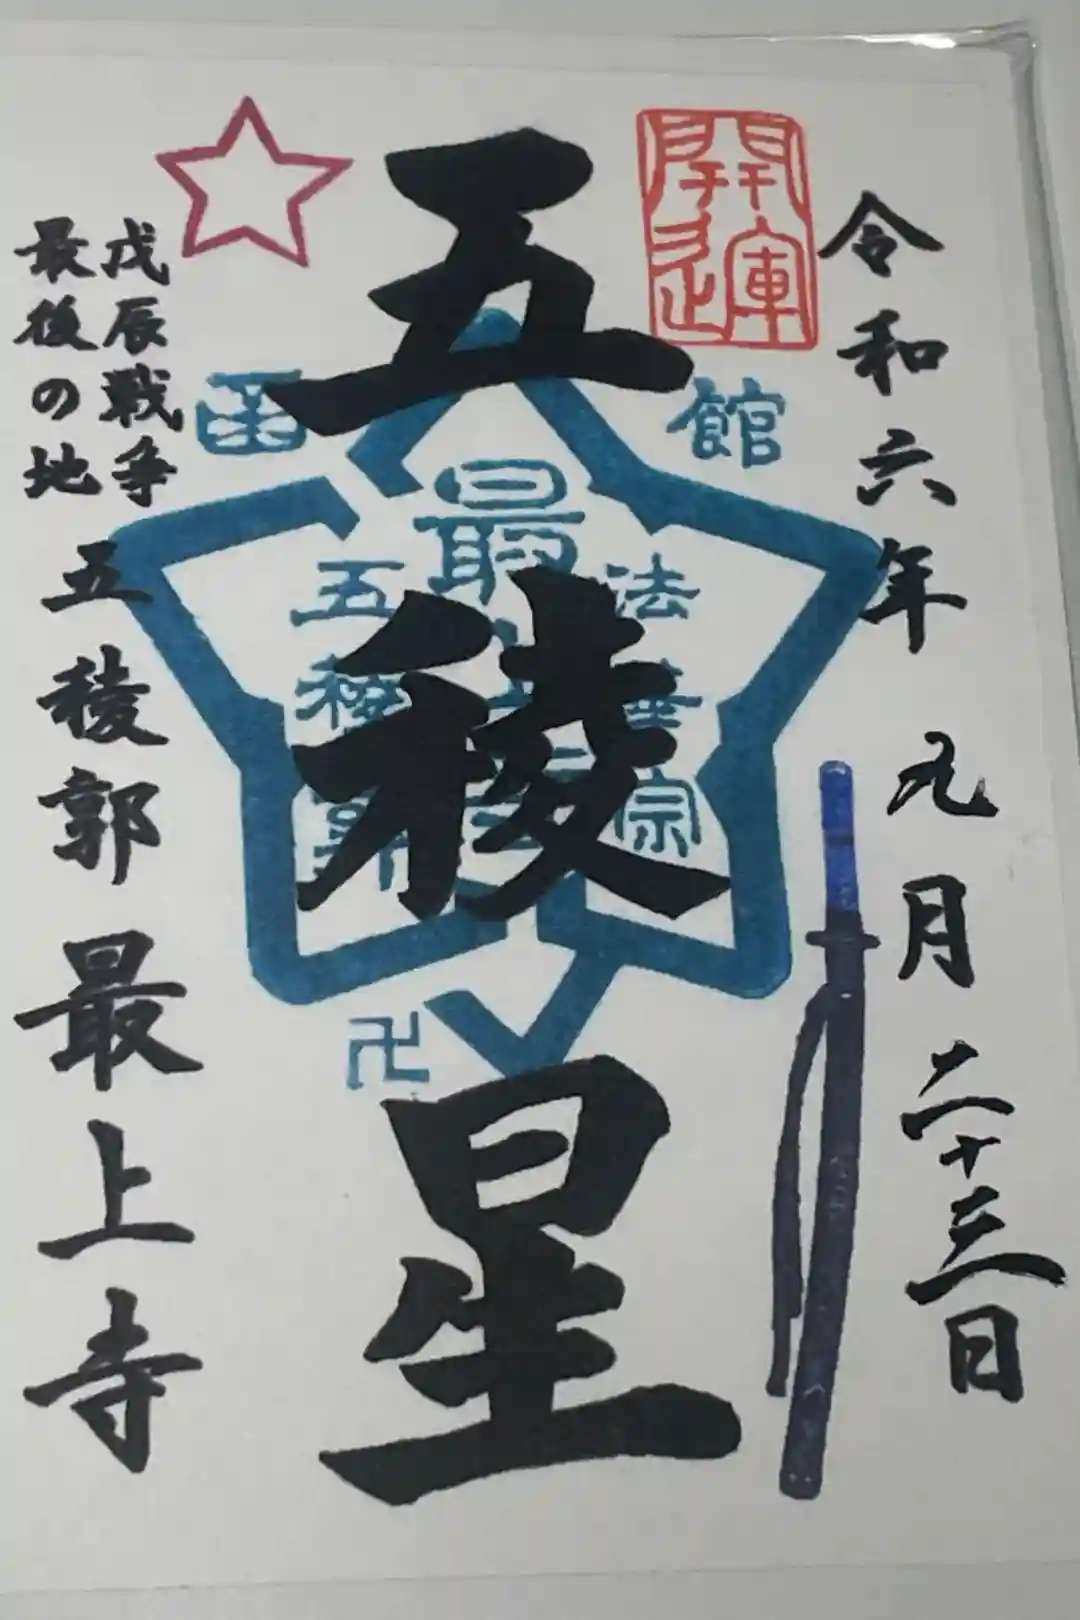 令和六年 九月二十三日
開運
五稜星
函館
法華宗
最上寺
五稜郭
卍
戊辰戦争
最後の地
五稜郭 最上寺